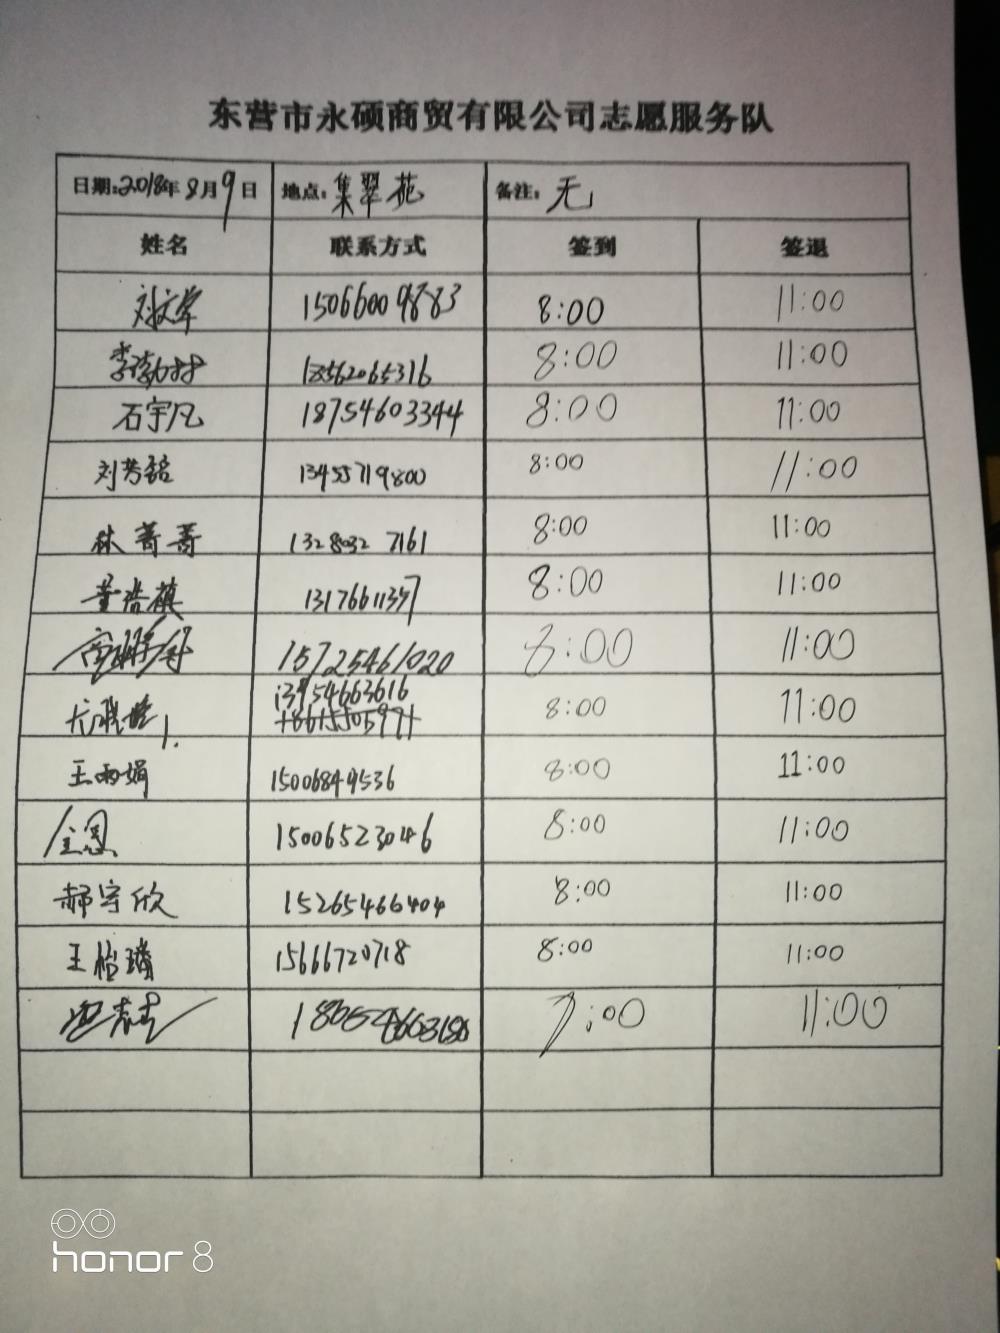 东营市永硕商贸有限公司志愿服务队
日期:2018年8月9日 地点:集翠苑 备注:无
姓名 联系方式 签到 签退
15066009883 8:00 11:00
18562065316 8:00 11:00
石宇凡 18754603344 8:00 11:00
刘芳铭 13455719800 8:00 11:00
林菁菁 1328032 7161 8:00 11:00
董浩祺 13176611357 8:00 11:00
15725461020 8:00 11:00
13954663616
8:00 11:00
王雨娟 15006849536 8:00 11:00
15006523046 8:00 11:00
郝宇欣 15265466404 8:00 11:00
王怡璠 15666720718 8:00 11:00
7:00 11:00
honor 8